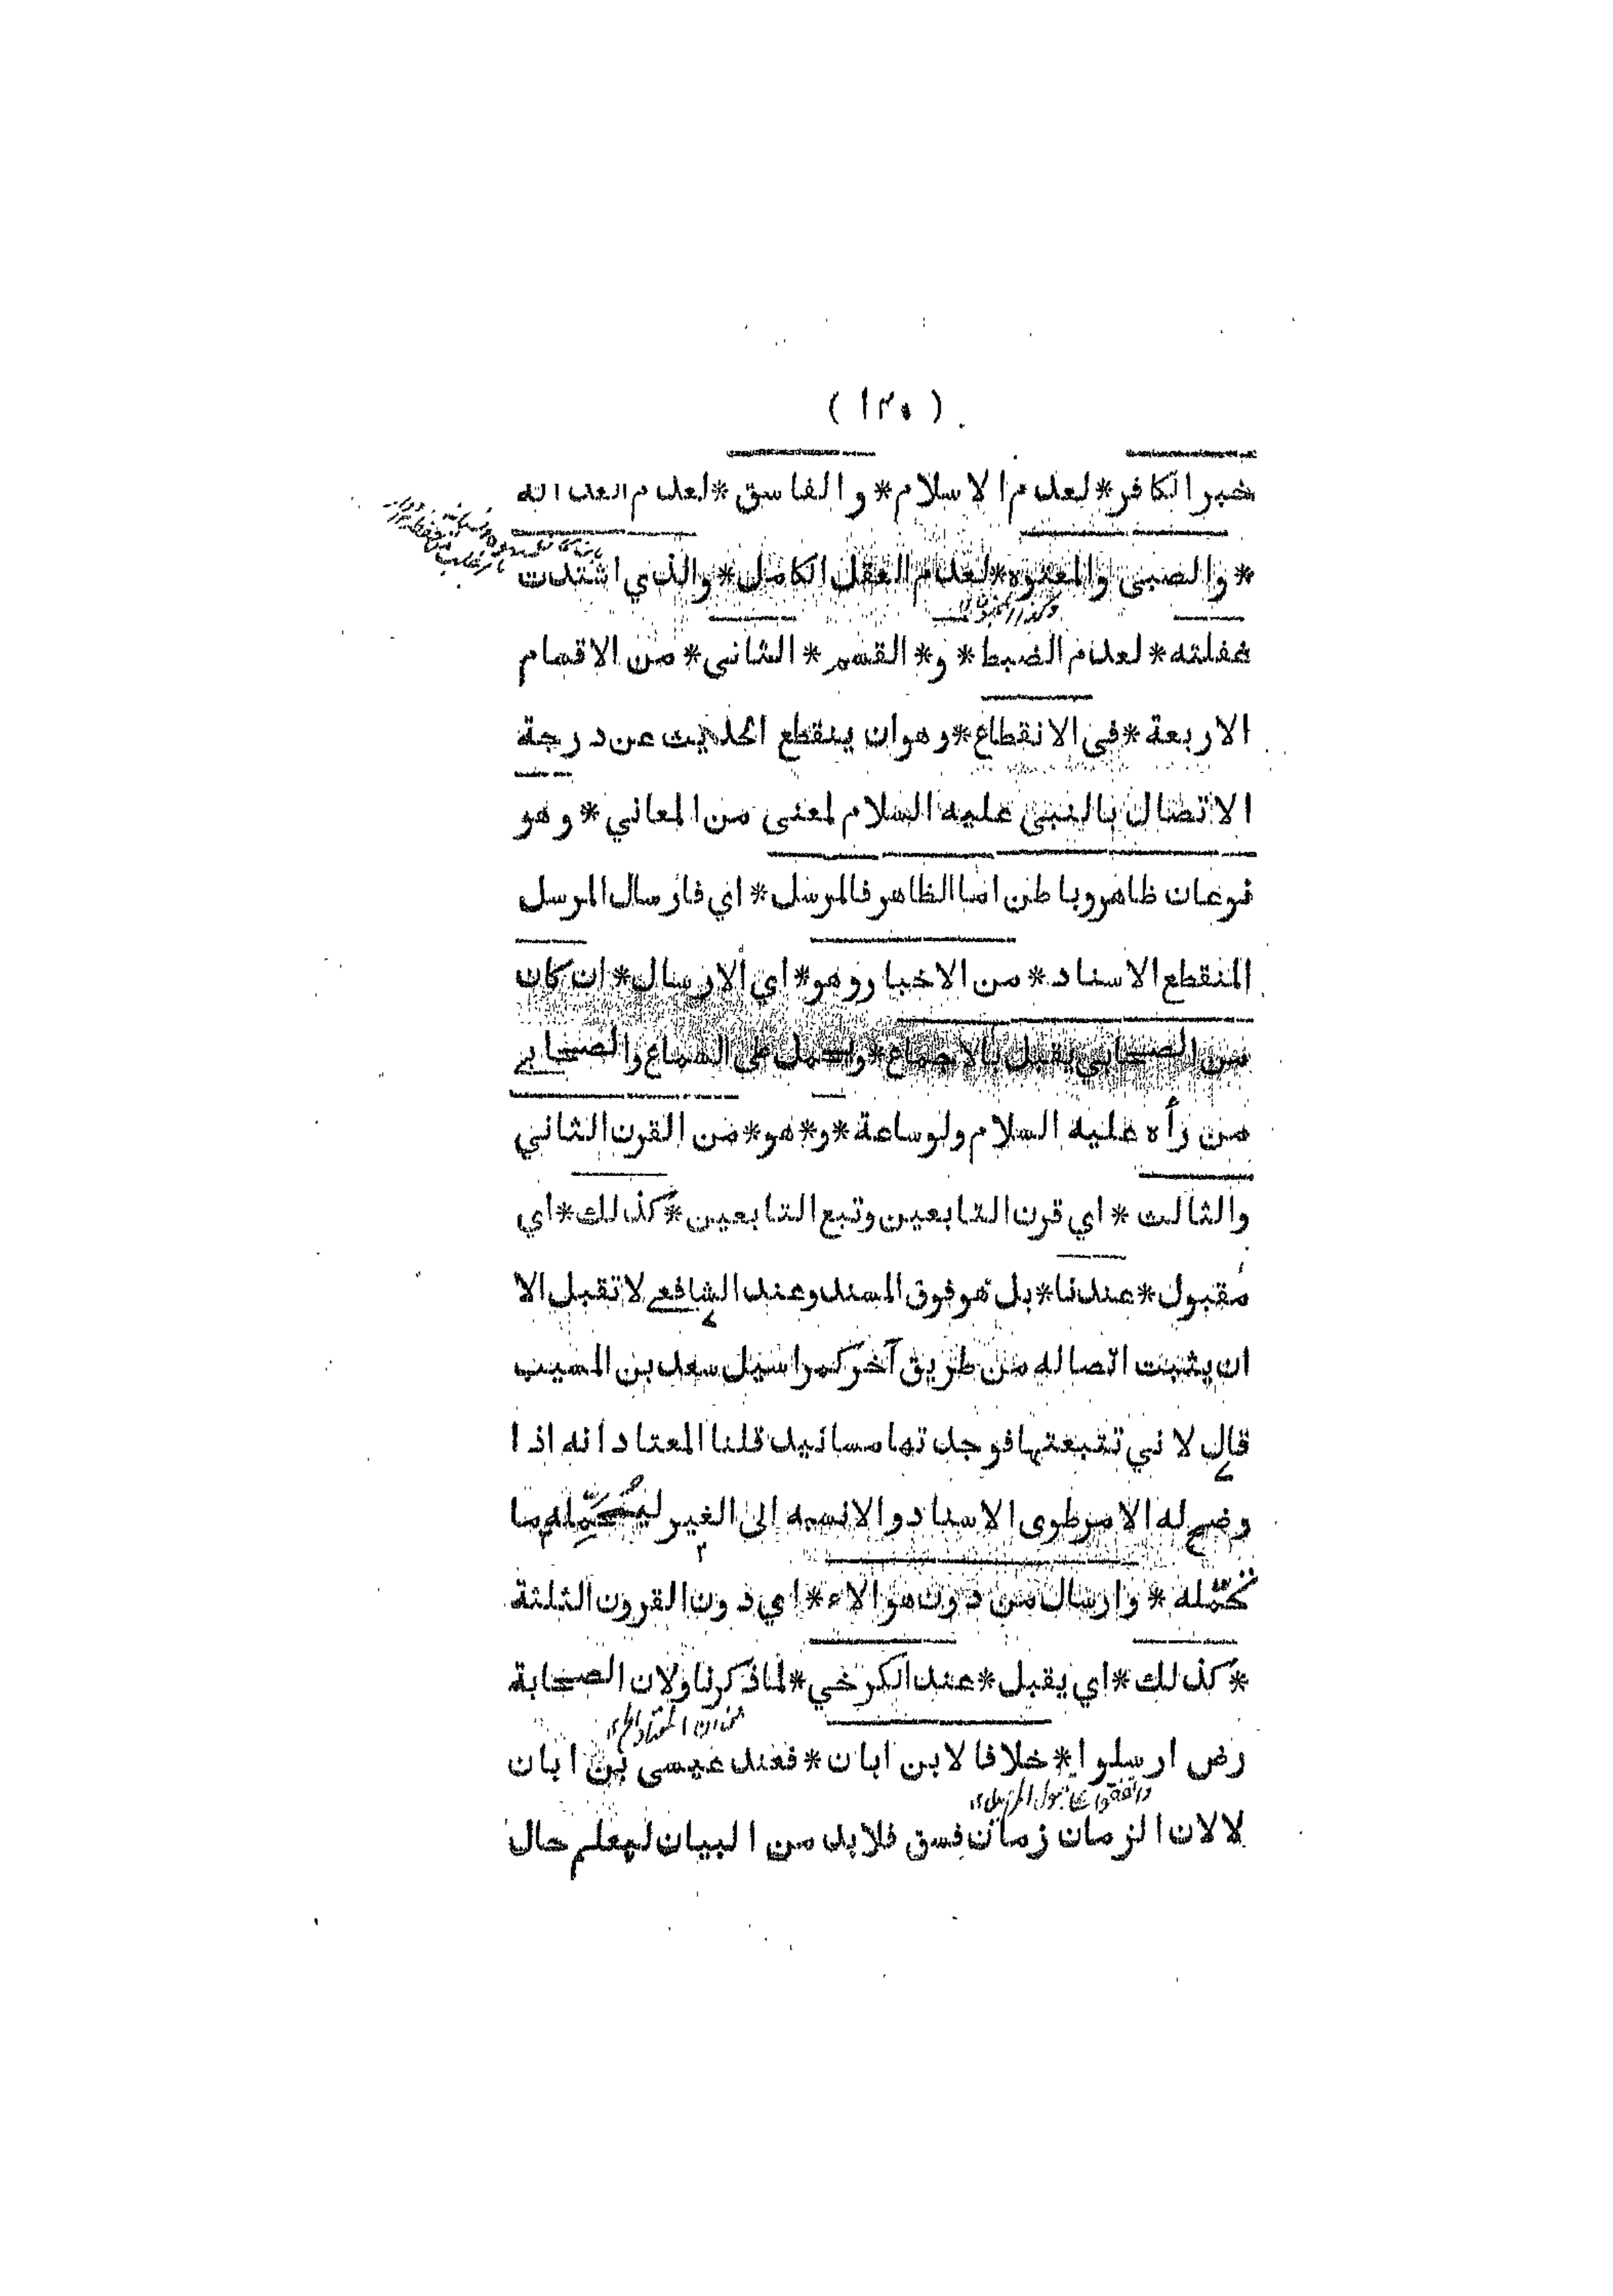 ( ١٢٥ )
خبر الكافر * لعدم الاسلام * والفاسق * لعدم العدالة
* والصبي والمعتوه * لعدم العقل الكامل * والذي اشتدت
غفلته * لعدم الضبط * و * القسم * الثاني * من الاقسام
الاربعة * في الانقطاع * وهوان ينقطع الحديث عن درجة
الاتصال بالنبي عليه السلام لمعنى من المعاني * وهو
نوعان ظاهر وباطن اما الظاهر فالمرسل * اي فارسال المرسل
المنقطع الاسناد * من الاخبار وهو * اي الارسال * ان كان
من الصحابي يقبل بالاجماع * ويحمل على السماع والصحابي
من رأه عليه السلام ولو ساعة * و * هو * من القرن الثاني
والثالث * اي قرن التابعين وتبع التابعين * كذلك * اي
مقبول * عندنا * بل هو فوق المسند وعند الشافعي لا تقبل الا
ان يثبت اتصاله من طريق آخر كمراسيل سعد بن المسيب
قال لاني تتبعتها فوجدتها مسانيد قلنا المعتاد انه اذا
وضح له الامر طوى الاسناد والا نسبه الى الغير ليحمّله ما
تحمّله * وارسال من دون هوالاء * اي دون القرون الثلثة
* كذلك * اي يقبل * عند الكرخي * لما ذكرنا ولان الصحابة
رض ارسلوا * خلافا لابن ابان * فعند عيسى بن ابان
لا لان الزمان زمان فسق فلا بد من البيان ليعلم حال